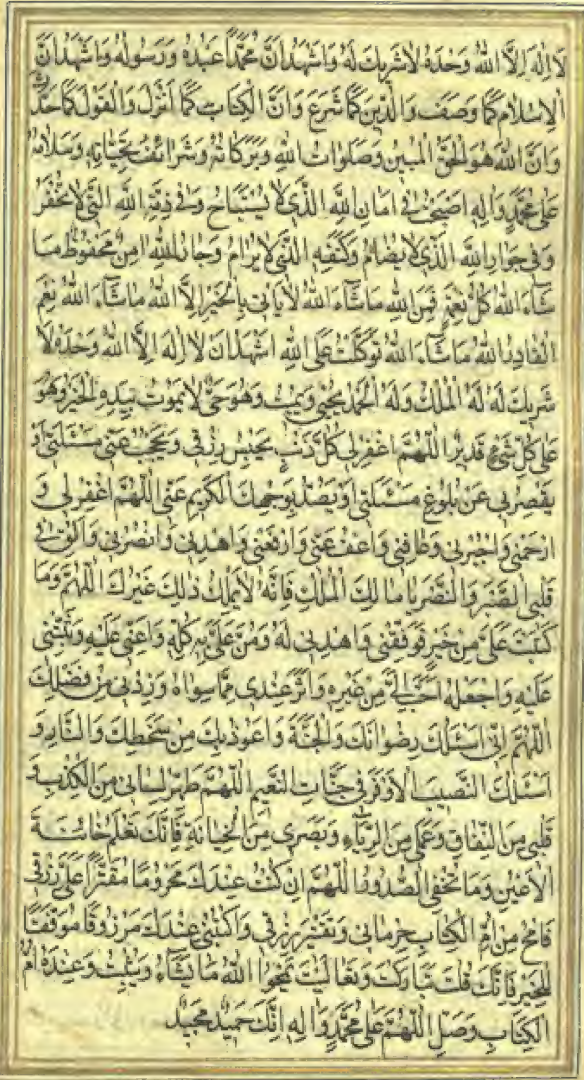 لَا إِلٰهَ إِلَّا اللّٰهُ وَحْدَهُ لَا شَرِيكَ لَهُ وَأَشْهَدُ أَنَّ مُحَمَّدًا عَبْدُهُ وَرَسُولُهُ وَأَشْهَدُ أَنَّ
الْإِسْلَامَ كَمَا وَصَفَ وَالدِّينَ كَمَا شَرَعَ وَأَنَّ الْكِتَابَ كَمَا أَنْزَلَ وَالْقَوْلَ كَمَا حَدَّثَ
وَأَنَّ اللّٰهَ هُوَ الْحَقُّ الْمُبِينُ وَصَلَوَاتُ اللّٰهِ وَبَرَكَاتُهُ وَشَرَائِفُ تَحِيَّاتِهِ وَسَلَامُهُ
عَلَى مُحَمَّدٍ وَآلِهِ أَصْبَحْتُ فِي أَمَانِ اللّٰهِ الَّذِي لَا يُسْتَبَاحُ وَفِي ذِمَّةِ اللّٰهِ الَّتِي لَا تُخْفَرُ
وَفِي جِوَارِ اللّٰهِ الَّذِي لَا يُضَامُ وَكَنَفِهِ الَّذِي لَا يُرَامُ وَجَارُ اللّٰهِ آمِنٌ مَحْفُوظٌ مَا
شَاءَ اللّٰهُ كُلُّ نِعْمَةٍ فَمِنَ اللّٰهِ مَا شَاءَ اللّٰهُ لَا يَأْتِي بِالْخَيْرِ إِلَّا اللّٰهُ مَا شَاءَ اللّٰهُ نِعْمَ
الْقَادِرُ اللّٰهُ مَا شَاءَ اللّٰهُ تَوَكَّلْتُ عَلَى اللّٰهِ أَشْهَدُ أَنْ لَا إِلٰهَ إِلَّا اللّٰهُ وَحْدَهُ لَا
شَرِيكَ لَهُ لَهُ الْمُلْكُ وَلَهُ الْحَمْدُ يُحْيِي وَيُمِيتُ وَهُوَ حَيٌّ لَا يَمُوتُ بِيَدِهِ الْخَيْرُ وَهُوَ
عَلَى كُلِّ شَيْءٍ قَدِيرٌ اللّٰهُمَّ اغْفِرْ لِي كُلَّ ذَنْبٍ يَحْبِسُ رِزْقِي وَيَحْجُبُ عَنِّي مَسْئَلَتِي أَوْ
يَقْصُرُ بِي عَنْ بُلُوغِ مَسْئَلَتِي أَوْ يَصُدُّ بِوَجْهِكَ الْكَرِيمِ عَنِّي اللّٰهُمَّ اغْفِرْ لِي وَ
ارْحَمْنِي وَاجْبُرْنِي وَعَافِنِي وَاعْفُ عَنِّي وَارْفَعْنِي وَاهْدِنِي وَانْصُرْنِي وَأَلْقِ فِي
قَلْبِي الصَّبْرَ وَالنَّصْرَ يَا مَالِكَ الْمُلْكِ فَإِنَّهُ لَا يَمْلِكُ ذٰلِكَ غَيْرُكَ اللّٰهُمَّ وَمَا
كَتَبْتَ عَلَيَّ مِنْ خَيْرٍ فَوَفِّقْنِي وَاهْدِنِي لَهُ وَمُنَّ عَلَيَّ بِهِ كُلِّهِ وَأَعِنِّي عَلَيْهِ وَثَبِّتْنِي
عَلَيْهِ وَاجْعَلْهُ أَحَبَّ إِلَيَّ مِنْ غَيْرِهِ وَآثَرَ عِنْدِي مِمَّا سِوَاهُ وَزِدْنِي مِنْ فَضْلِكَ
اللّٰهُمَّ إِنِّي أَسْئَلُكَ رِضْوَانَكَ وَالْجَنَّةَ وَأَعُوذُ بِكَ مِنْ سَخَطِكَ وَالنَّارِ وَ
أَسْئَلُكَ النَّصِيبَ الْأَوْفَرَ فِي جَنَّاتِ النَّعِيمِ اللّٰهُمَّ طَهِّرْ لِسَانِي مِنَ الْكِذْبِ وَ
قَلْبِي مِنَ النِّفَاقِ وَعَمَلِي مِنَ الرِّيَاءِ وَبَصَرِي مِنَ الْخِيَانَةِ فَإِنَّكَ تَعْلَمُ خَائِنَةَ
الْأَعْيُنِ وَمَا تُخْفِي الصُّدُورُ اللّٰهُمَّ إِنْ كُنْتُ عِنْدَكَ مَحْرُومًا مُقَتَّرًا عَلَيَّ رِزْقِي
فَامْحُ مِنْ أُمِّ الْكِتَابِ حِرْمَانِي وَتَقْتِيرَ رِزْقِي وَاكْتُبْنِي عِنْدَكَ مَرْزُوقًا مُوَفَّقًا
لِلْخَيْرِ فَإِنَّكَ قُلْتَ تَبَارَكْتَ وَتَعَالَيْتَ يَمْحُوا اللّٰهُ مَا يَشَاءُ وَيُثْبِتُ وَعِنْدَهُ أُمُّ
الْكِتَابِ وَصَلِّ اللّٰهُمَّ عَلَى مُحَمَّدٍ وَآلِهِ إِنَّكَ حَمِيدٌ مَجِيدٌ